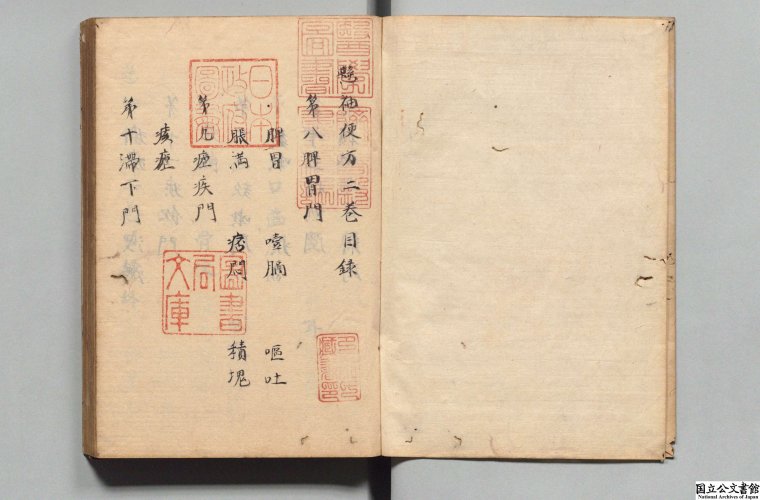 醫学
圖書
懸袖便方二巻目録
第八脾胃門
脾胃 噎膈 嘔吐
脹満 痞悶 積塊
第九瘧疾門
痎瘧
第十滞下門
日本
政府
圖書
圖書
局
文庫
国立公文書館
National Archives of Japan